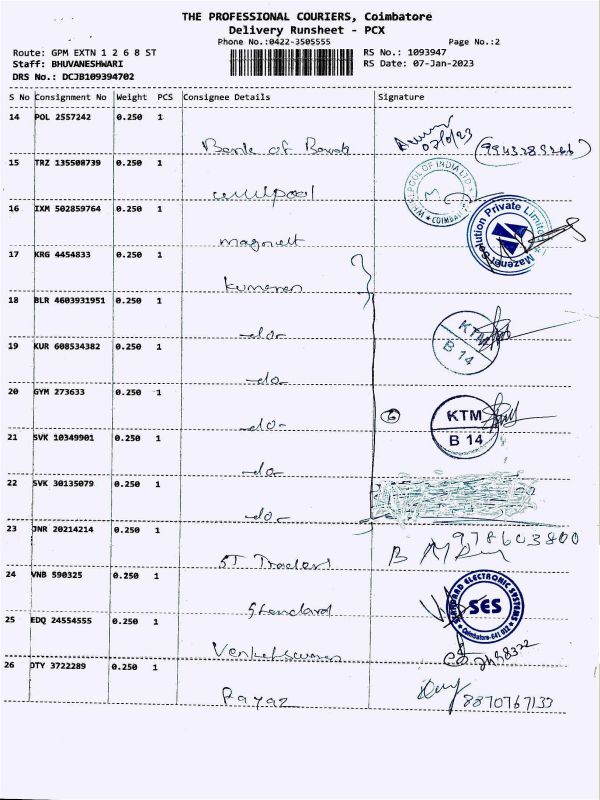 THE PROFESSIONAL COURIERS, Coimbatore
Delivery Runsheet - PCX
Phone No.:0422-3505555 Page No.:2
Route: GPM EXTN 1 2 6 8 ST RS No.: 1093947
Staff: BHUVANESHWARI RS Date: 07-Jan-2023
DRS No.: DCJB109394702
S No Consignment No Weight PCS Consignee Details Signature
14 POL 2557242 0.250 1
Bank of Baroda
15 TRZ 135508739 0.250 1
WHIRLPOOL OF INDIA LTD. COIMBATORE
16 IXM 502859764 0.250 1
Mazenet Solution Private Limited
17 KRG 4454833 0.250 1
Kumaran
18 BLR 4603931951 0.250 1
-do-
KTM
B 14
19 KUR 608534382 0.250 1
-do-
20 GYM 273633 0.250 1
-do- 6 KTM
B 14
21 SVK 10349901 0.250 1
-do-
22 SVK 30135079 0.250 1
-do-
23 JNR 20214214 0.250 1
ST Traders
24 VNB 590325 0.250 1
Standard
STANDARD ELECTRONIC SYSTEMS SES Coimbatore-641 012
25 EDQ 24554555 0.250 1
26 DTY 3722289 0.250 1
Payaz 8870767133